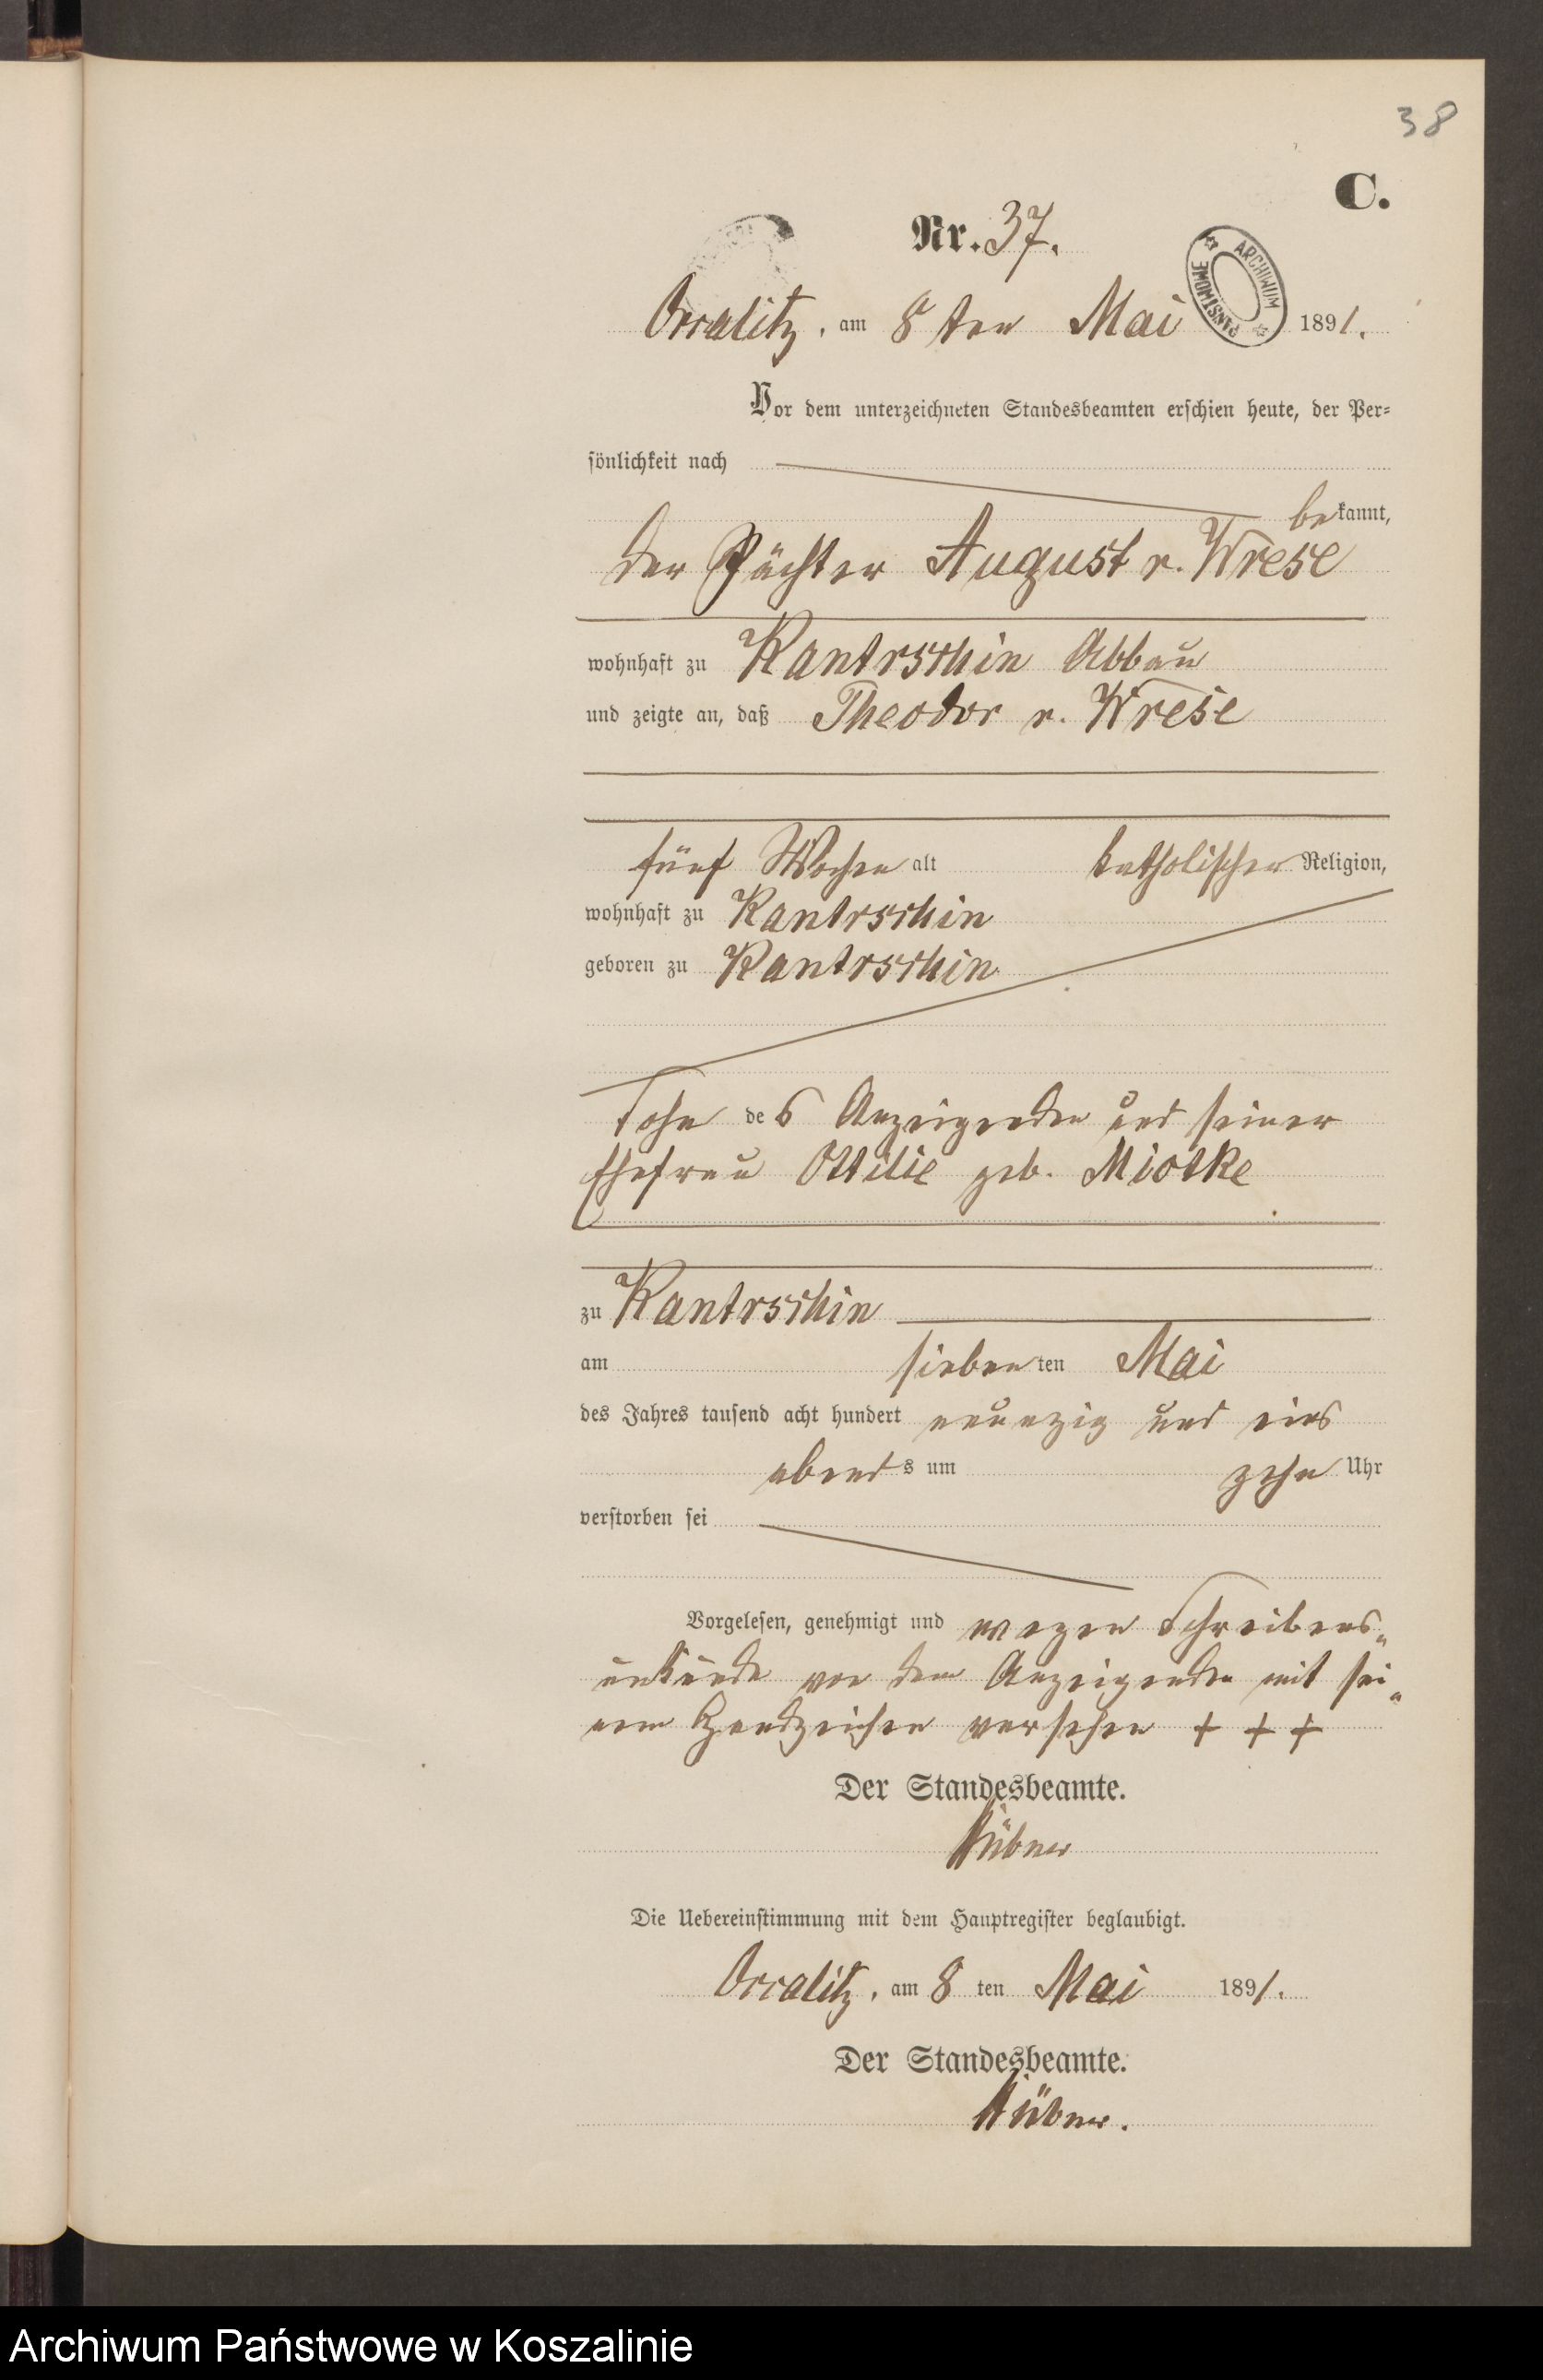 38
C.
Nr. 37.
ARCHIWUM PAŃSTWOWE
Occalitz, am 8 ten Mai 1891.
Vor dem unterzeichneten Standesbeamten erschien heute, der Per-
sönlichkeit nach
bekannt,
der Pächter August v. Wrese
wohnhaft zu Kantrschin Abbau
und zeigte an, daß Theodor v. Wrese
fünf Wochen alt katholischer Religion,
wohnhaft zu Kantrschin
geboren zu Kantrschin
Sohn des Anzeigenden und seiner
Ehefrau Ottilie geb. Miotke
zu Kantrschin
am siebenten Mai
des Jahres tausend acht hundert neunzig und eins
abends um zehn Uhr
verstorben sei
Vorgelesen, genehmigt und wegen Schreibens-
unkunde von dem Anzeigenden mit sei-
nem Handzeichen versehen + + +
Der Standesbeamte.
Hübner
Die Uebereinstimmung mit dem Hauptregister beglaubigt.
Occalitz, am 8 ten Mai 1891.
Der Standesbeamte.
Hübner.
Archiwum Państwowe w Koszalinie